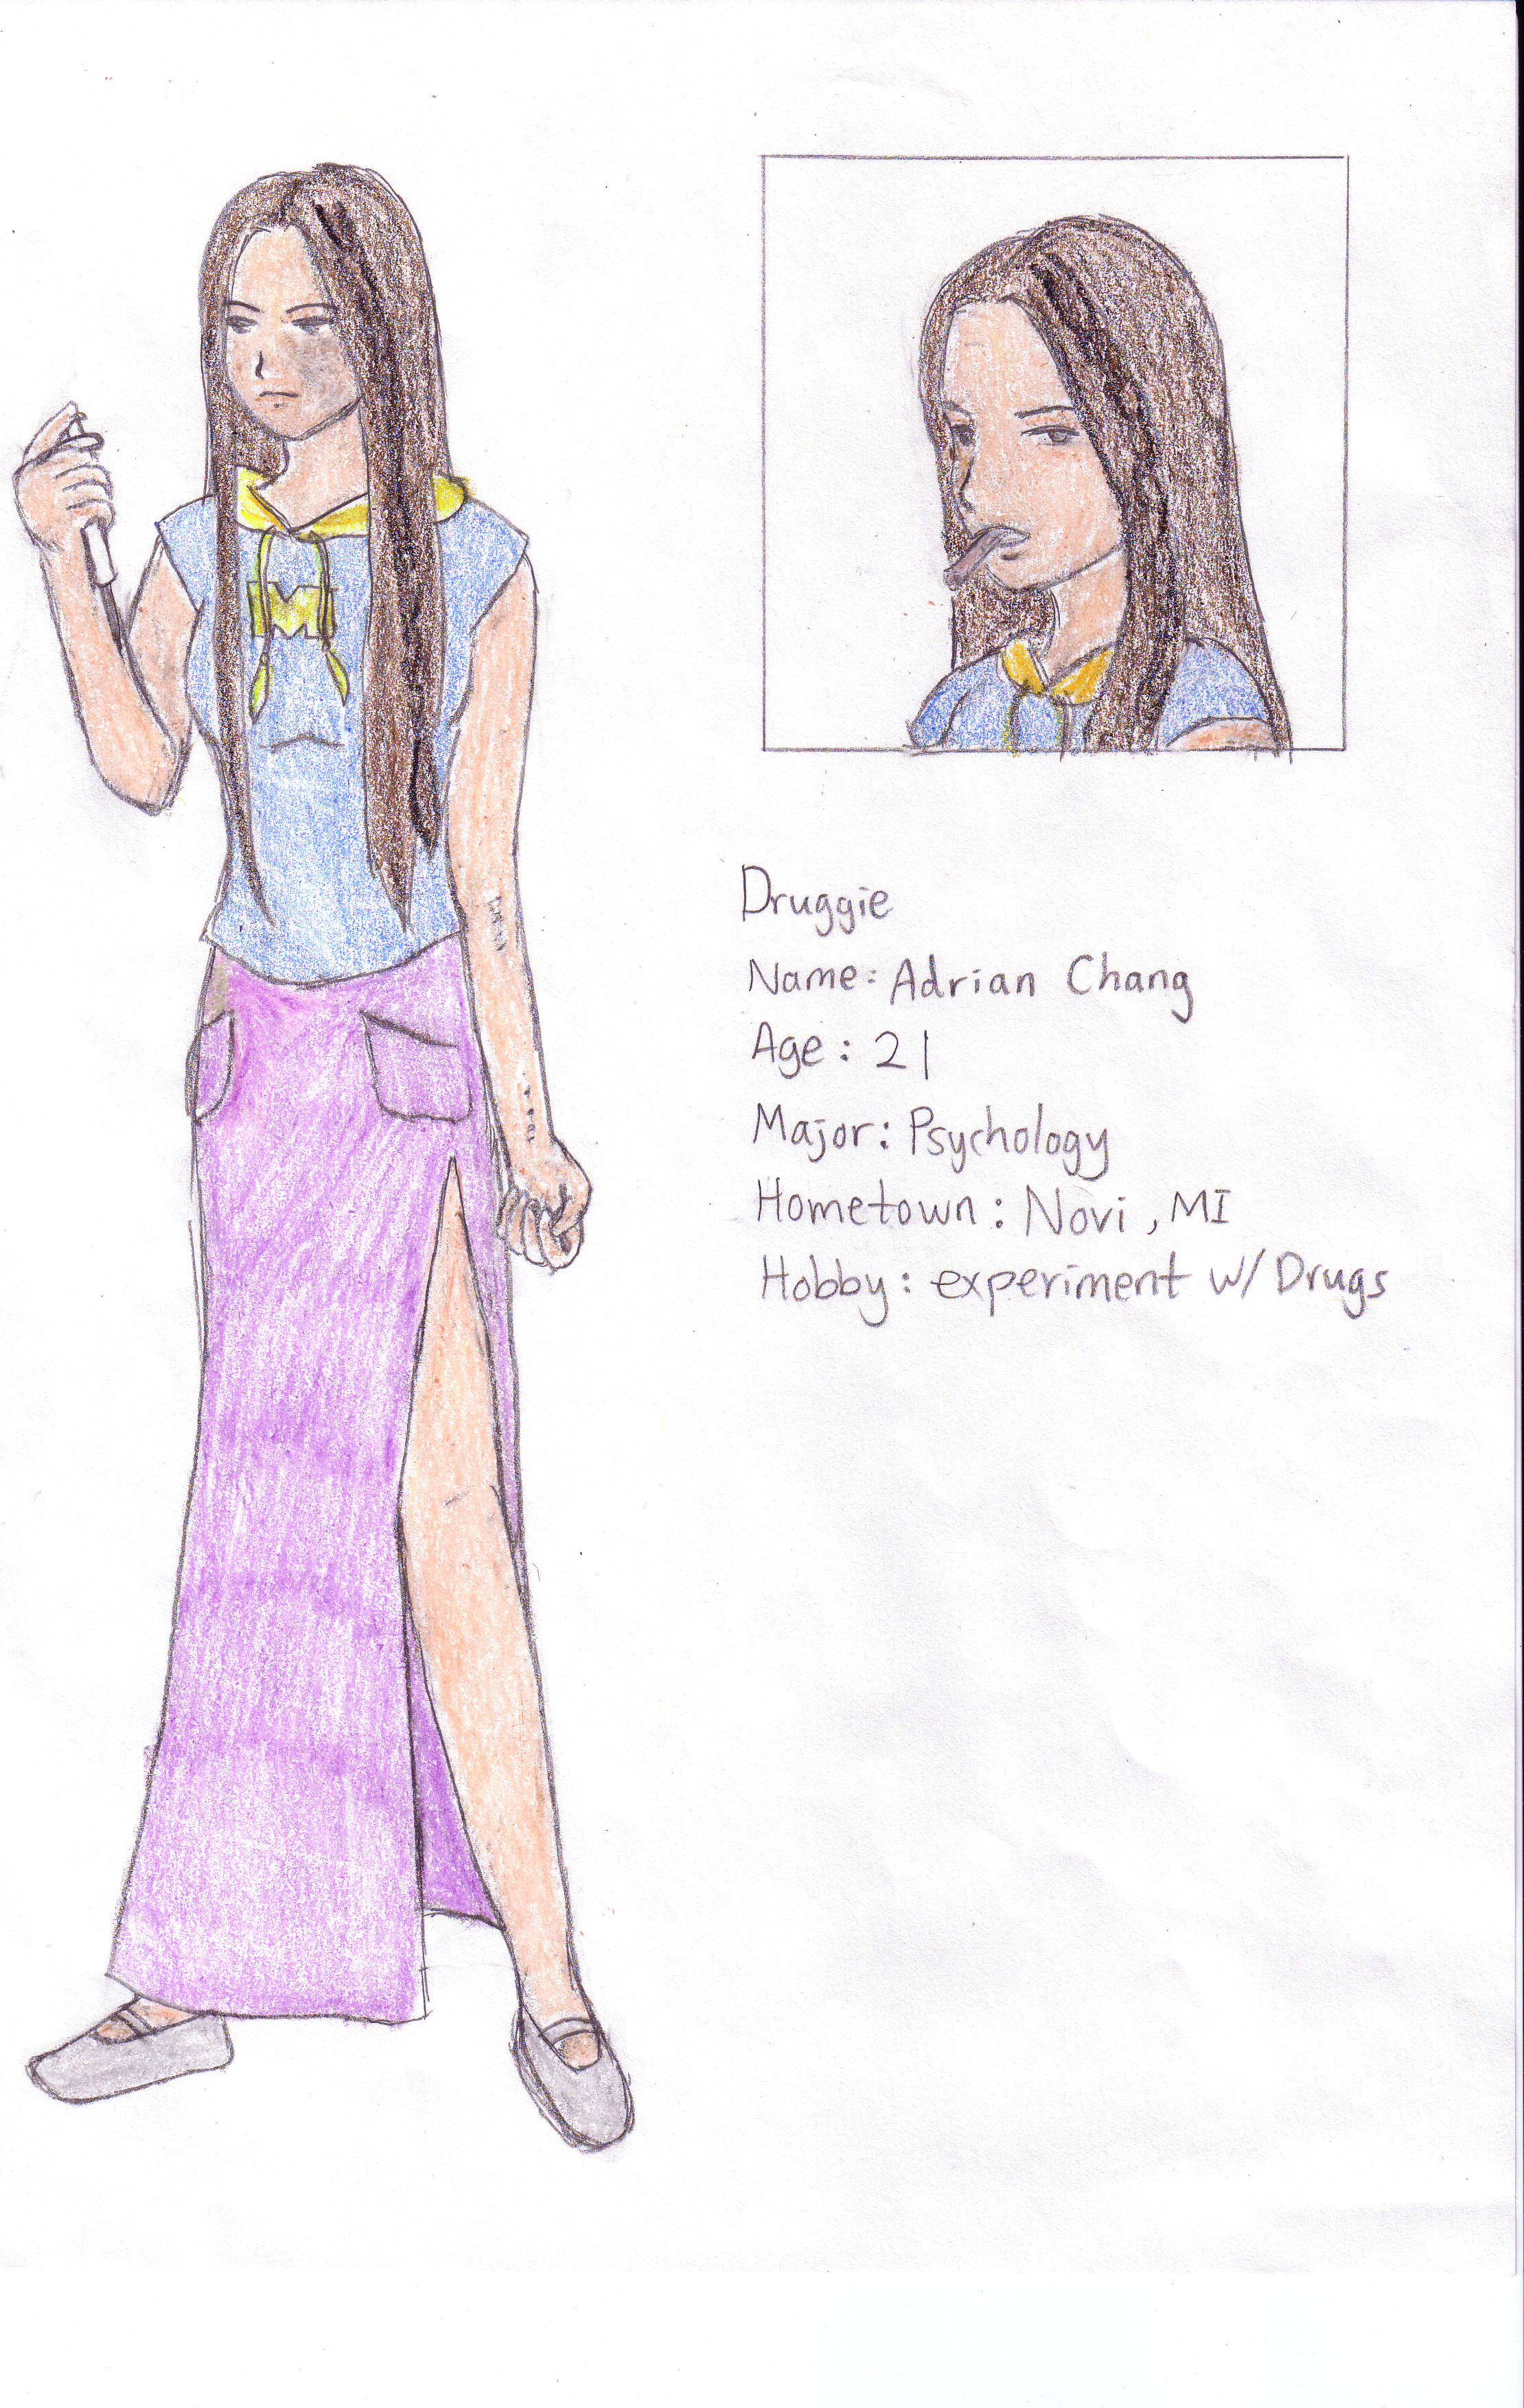 M
Druggie
Name: Adrian Chang
Age: 21
Major: Psychology
Hometown: Novi, MI
Hobby: experiment w/ Drugs